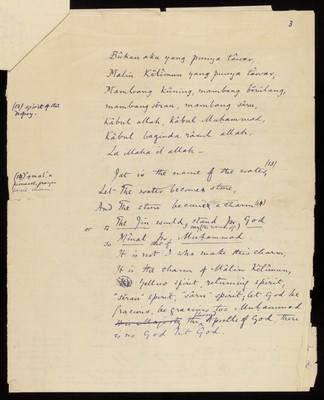 3
Bûkan aku yang punya tâwar,
Malin Kâlimun yang punya tâwar,
Mambang kûning, mambang bĕrûlang,
mambang sĕran, mambang sâru,
Kâbul allah, Kâbul Muhammad,
Kâbul baginda rasul allah,
La ilaha il allah —
(13) spirit of the
Jat is the name of the water, (13)
Let the water become stone,
And the stone become a charm (14)
(14)
or to The Jin would stand for God
for Muhammad
It is not I who make this charm,
It is the charm of Mâlin Kâlimun,
Yellow spirit, returning spirit,
"sĕran" spirit, "sâru" spirit, let God be
gracious, be gracious too Muhammad
the Apostle of God, there
is no God but God.